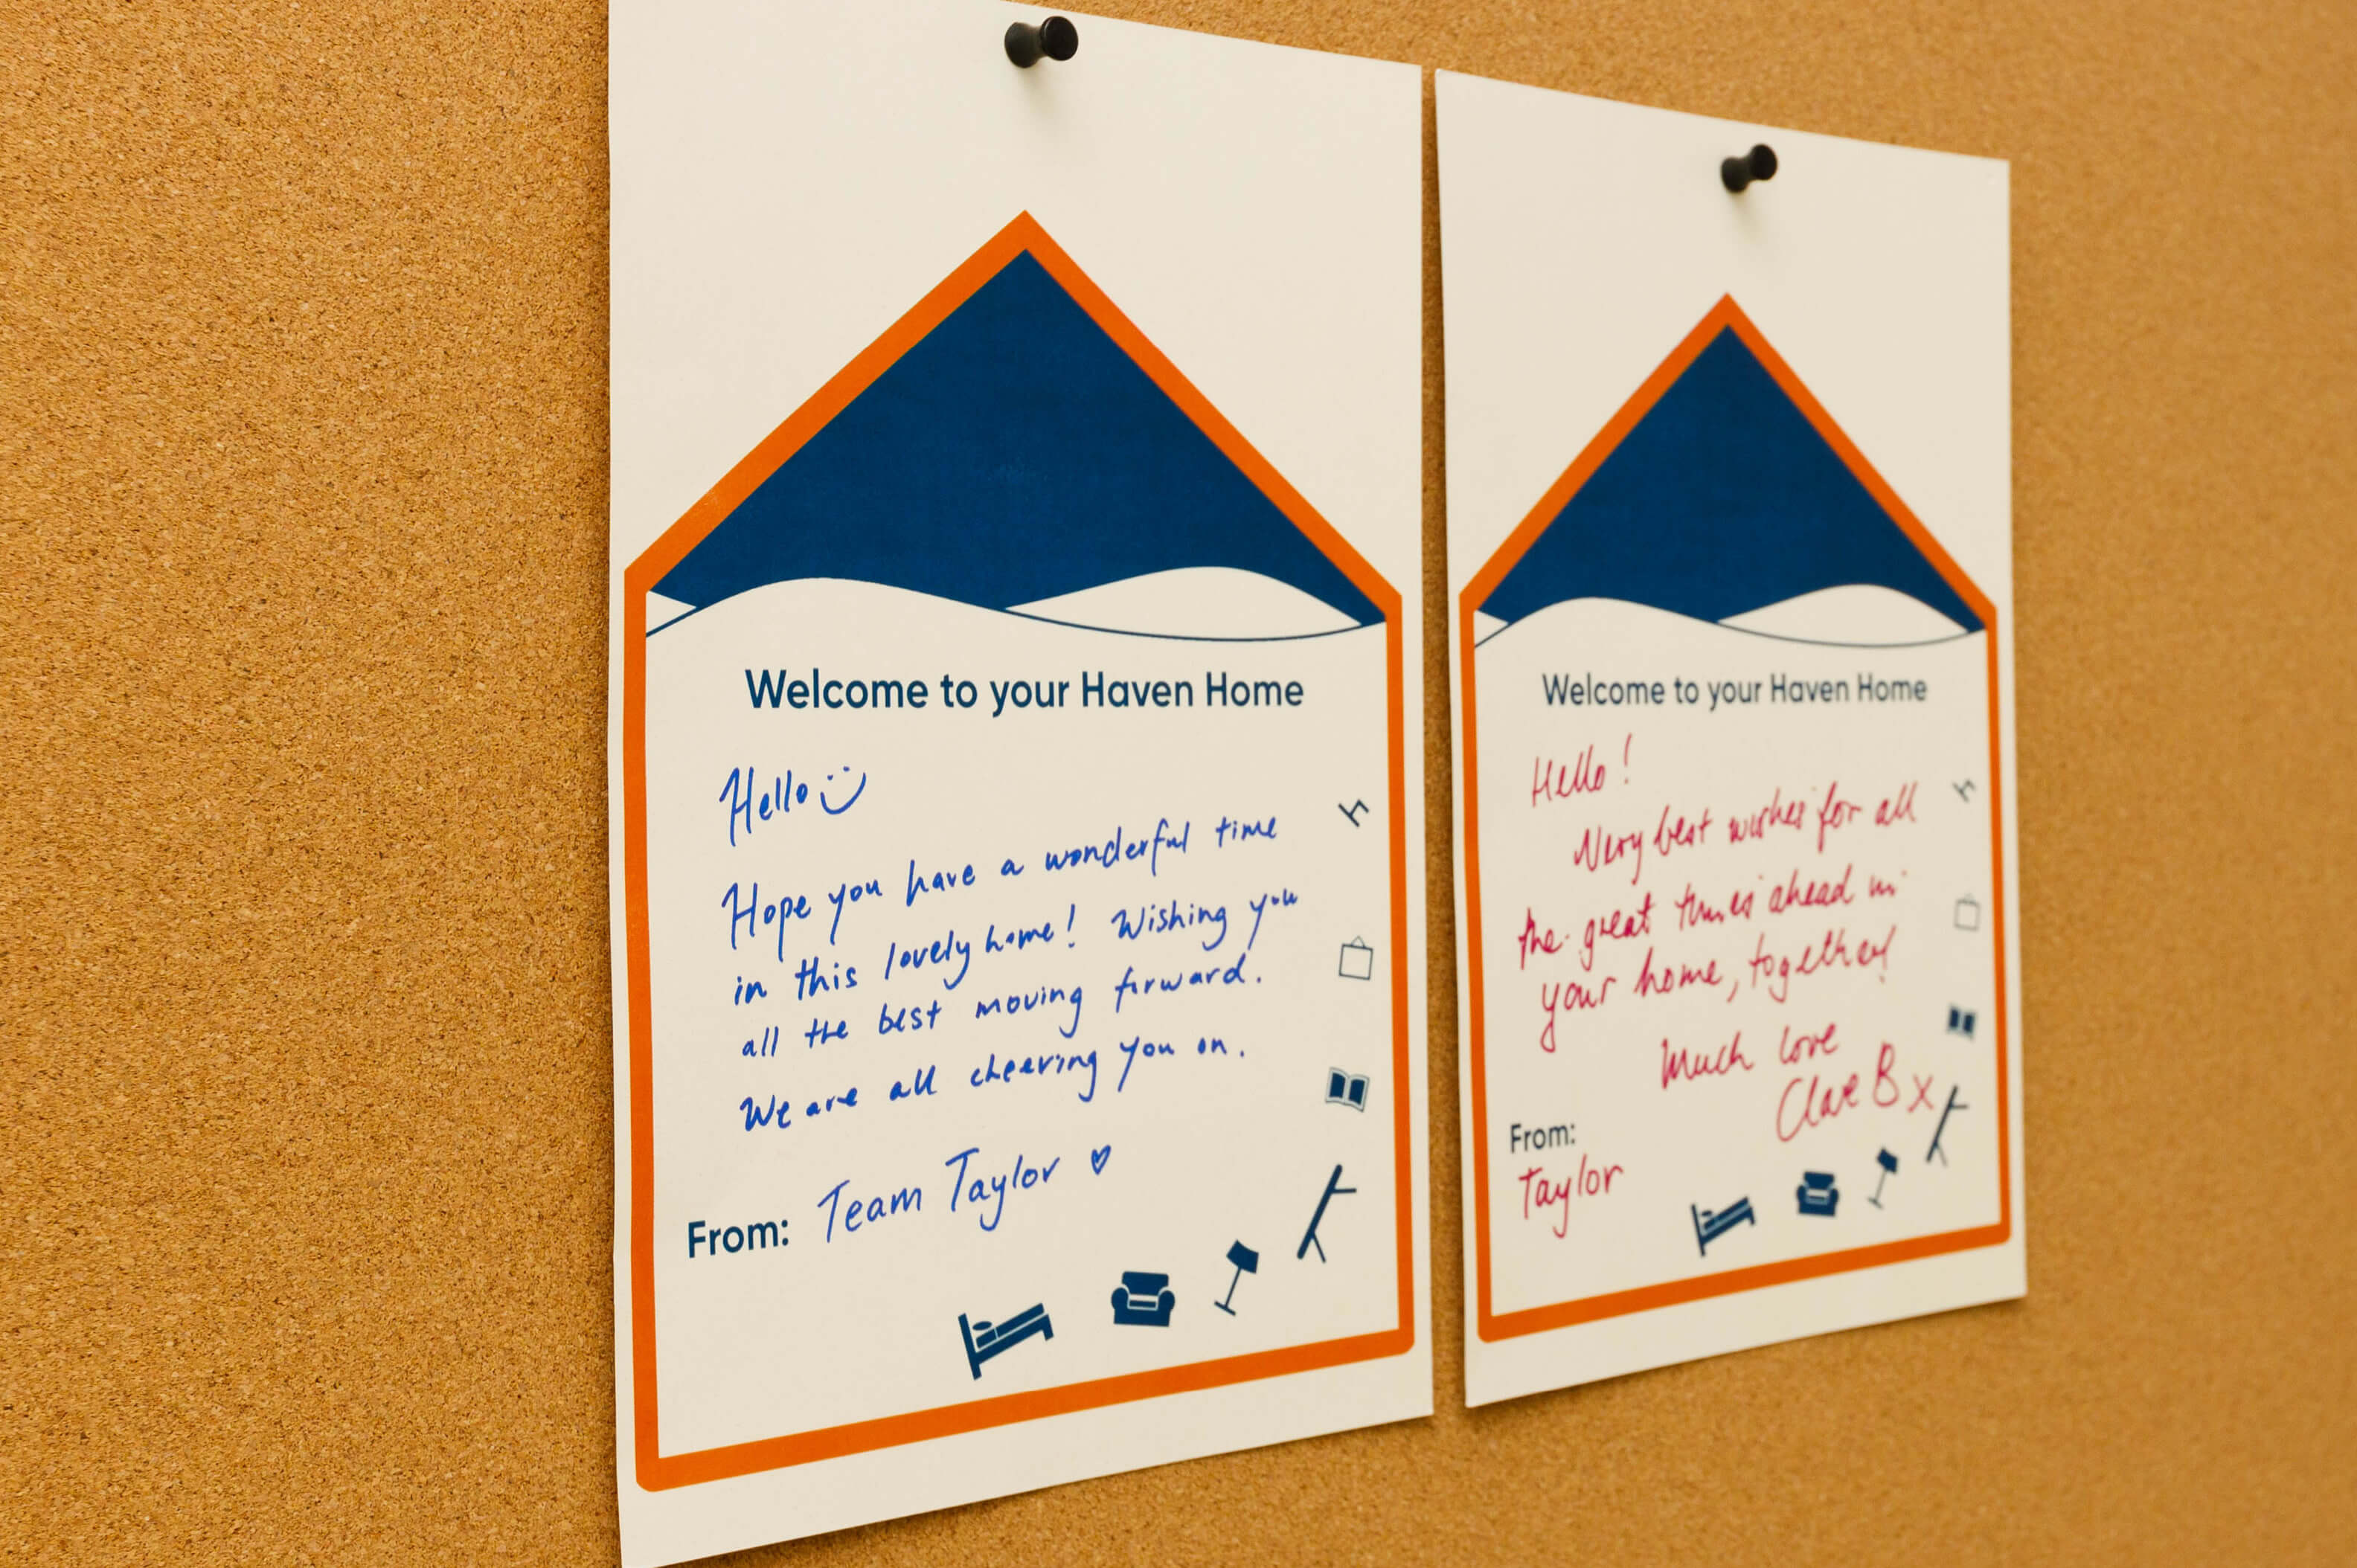 Welcome to your Haven Home
Hello
Hope you have a wonderful time
in this lovely home! Wishing you
all the best moving forward.
We are all cheering you on.
From: Team Taylor ♥
Welcome to your Haven Home
Hello!
Very best wishes for all
the great times ahead in
your home, together!
Much love
Clare B x
From:
Taylor